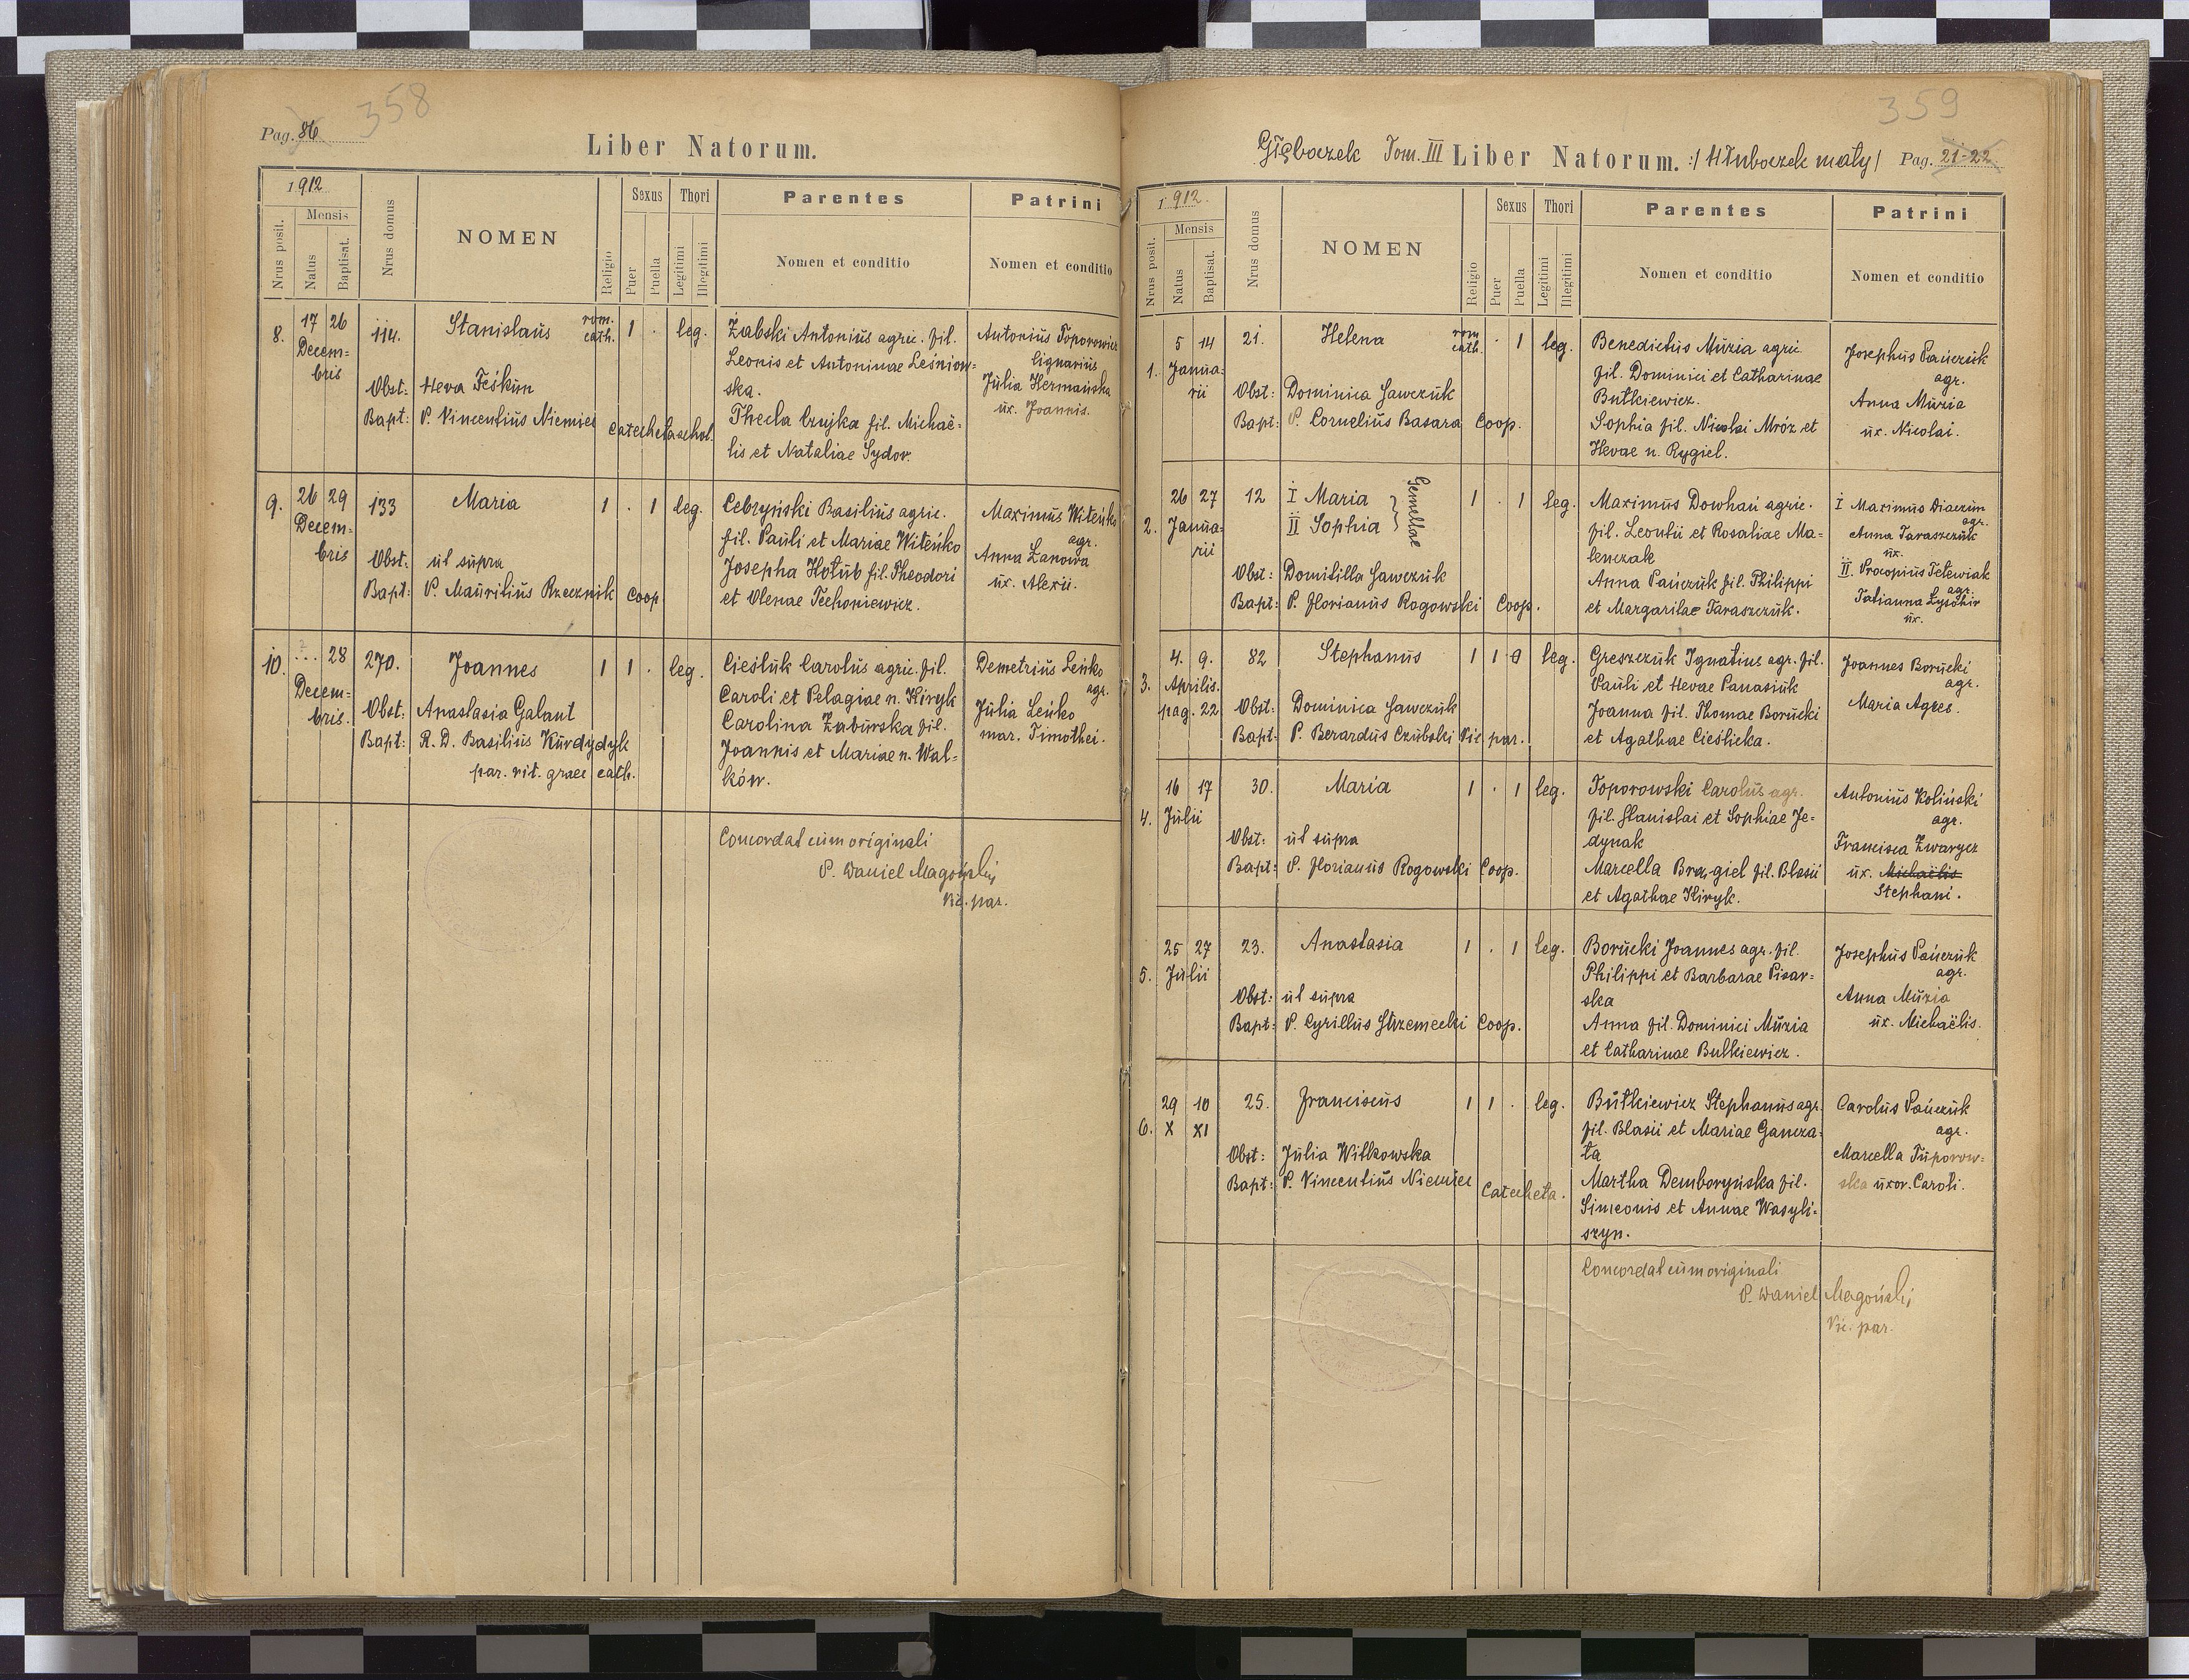 358
Pag. 86
Liber Natorum.
1912
Nrus posit.
Mensis
Natus
Baptisat.
Nrus domus
NOMEN
Religio
Sexus
Puer
Puella
Thori
Legitimi
Illegitimi
Parentes
Nomen et conditio
Patrini
Nomen et conditio
8. 17 26 114. Stanislaus rom. cath. 1 . leg.
Decem=
bris
Obst: Heva Feśkun
Bapt: P. Vincentius Niemiec Catecheta schol.
Żabski Antonius agric. fil.
Leonis et Antoninae Leśniow=
ska.
Thecla Czujka fil. Michaë=
lis et Nataliae Sydor.
Antonius Toporowicz
lignarius
Julia Hermańska
ux. Joannis.
9. 26 29 133 Maria 1 . 1 leg.
Decem-
bris
Obst: ut supra
Bapt: P. Maurilius Rzecznik Coop
Cebryński Basilius agric.
fil. Pauli et Mariae Witeńko
Josepha Hołub fil. Theodori
et Olenae Techoniewicz.
Maximus Witeńko
agr.
Anna Łanowa
ux. Alexii.
10. ... 28 270. Joannes 1 1 . leg.
Decem=
bris.
Obst: Anastasia Galant
Bapt: R. D. Basilius Kurdydyk
par. rit. graec cath.
Cieśluk Carolus agric. fil.
Caroli et Pelagiae n. Kiryk
Carolina Zaburska fil.
Joannis et Mariae n. Wal=
ków.
Demetrius Leńko
agr.
Julia Leńko
mar. Timothei.
Concordat cum originali
P. Daniel Magoński
Vic. par.
359
Głęboczek Tom. III Liber Natorum. :/ Hłuboczek mały/ Pag. 21-22
1912.
Nrus posit.
Mensis
Natus
Baptisat.
Nrus domus
NOMEN
Religio
Sexus
Puer
Puella
Thori
Legitimi
Illegitimi
Parentes
Nomen et conditio
Patrini
Nomen et conditio
1. 5 14 21. Helena rom cath. . 1 leg.
Janua-
rii
Obst: Dominica Gawczuk
Bapt: P. Cornelius Basara Coop.
Benedictus Muzia agric
fil. Dominici et Catharinae
Butkiewicz.
Sophia fil. Nicolai Mróz et
Hevae n. Rygiel.
Josephus Pańczuk
agr.
Anna Muzia
ux. Nicolai.
2. 26 27 12 I Maria 1 . 1 leg.
II Sophia
Gemellae
Janua-
rii
Obst: Domitilla Gawczuk
Bapt: P. Florianus Rogowski Coop.
Maximus Dowhań agric.
fil. Leontii et Rosaliae Ma=
lenczak
Anna Pańczuk fil. Philippi
et Margaritae Taraszczuk.
I Maximus Diaczun
agr.
Anna Taraszczuk
ux.
II. Procopius Tetewiak
agr.
Tatianna Łysohir
ux.
3. 4. 9. 82 Stephanus 1 1 leg.
Aprilis.
pag. 22
Obst: Dominica Gawczuk
Bapt: P. Berardus Czubski Vic par.
Greszczuk Ignatius agr. fil.
Pauli et Hevae Panasiuk
Joanna fil. Thomae Borucki
et Agathae Cieślicka.
Joannes Borucki
agr.
Maria Agres.
4. 16 17 30. Maria 1 . 1 leg.
Julii
Obst: ut supra
Bapt: P. Florianus Rogowski Coop.
Toporowski Carolus agr.
fil. Stanislai et Sophiae Je=
dynak
Marcella Bręgiel fil. Blasii
et Agathae Kiryk.
Antonius Koliński
agr.
Francisca Zwarycz
ux. Michaëlis
Stephani.
5. 25 27 23. Anastasia 1 . 1 leg.
Julii
Obst: ut supra
Bapt: P. Cyrillus Strzemecki Coop.
Borucki Joannes agr. fil.
Philippi et Barbarae Pisar=
ska
Anna fil. Dominici Muzia
et Catharinae Butkiewicz.
Josephus Pańczuk
agr.
Anna Muzia
ux. Michaëlis.
6. 29 10 25. Franciscus 1 1 . leg.
X XI
Obst: Julia Witkowska
Bapt: P. Vincentius Niemiec Catecheta.
Butkiewicz Stephanus agr.
fil. Blasii et Mariae Gancza=
ta
Martha Demboryńska fil.
Simeonis et Annae Wasyli=
szyn.
Carolus Pańczuk
agr.
Marcella Tuporow=
ska uxor. Caroli.
Concordat cum originali
P. Daniel Magoński
Vic. par.